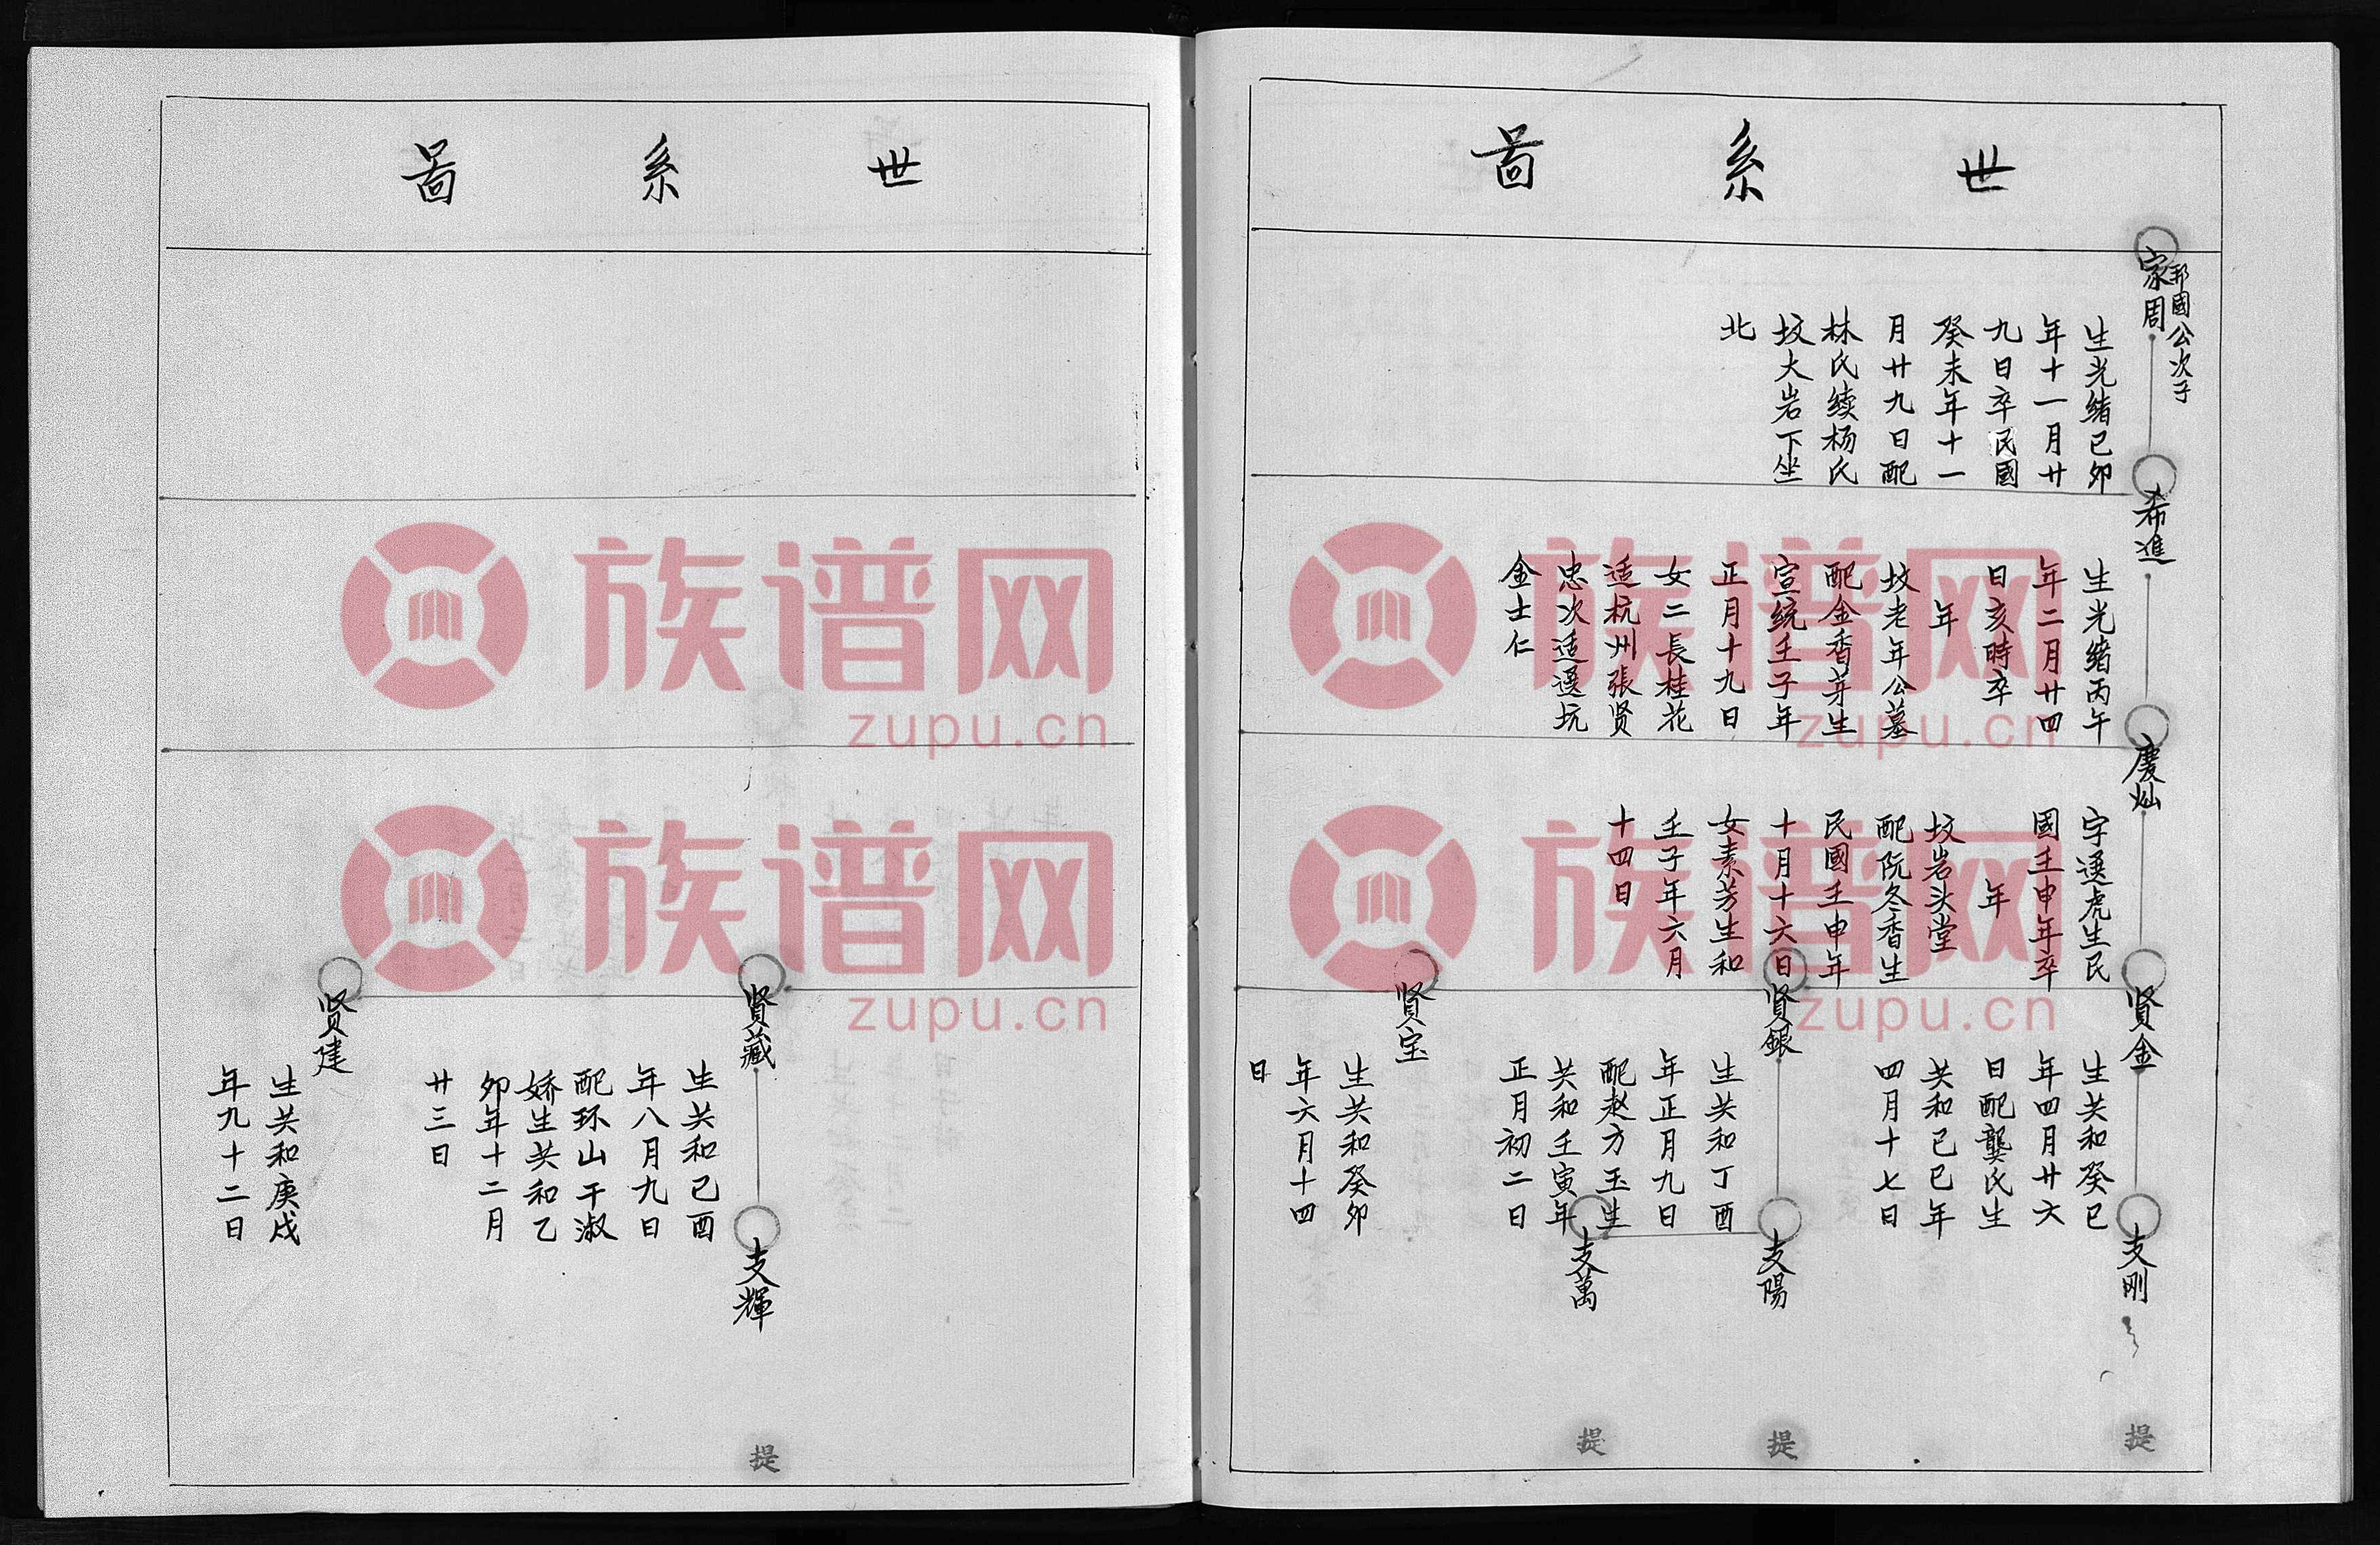 世系啚
邦國公次子
家周
生光緒已卯
年十一月廿
九日卒民國
癸未年十一
月廿九日配
林氏续杨氏
坟大岩下坐
北
希進
生光緒丙午
年二月廿四
日亥時卒
年
坟老年公墓
配金香芽生
宣统壬子年
正月十九日
女二長桂花
适杭州張贤
忠次适遥坑
金士仁
慶灿
字遥虎生民
國壬申年卒
年
坟岩头堂
配阮冬香生
民國壬申年
十月十六日
女素芳生和
壬子年六月
十四日
贤金
生共和癸已
年四月廿六
日配龔氏生
共和已已年
四月十七日
支刚
提
贤銀
生共和丁酉
年正月九日
配赵方玉生
共和壬寅年
正月初二日
支陽
提
支萬
提
贤宝
生共和癸卯
年六月十四
日
世系啚
贤藏
生共和已酉
年八月九日
配环山干淑
娇生共和乙
卯年十二月
廿三日
支輝
提
贤建
生共和庚戌
年九十二日
族谱网
zupu.cn
族谱网
zupu.cn
族谱网
zupu.cn
族谱网
zupu.cn